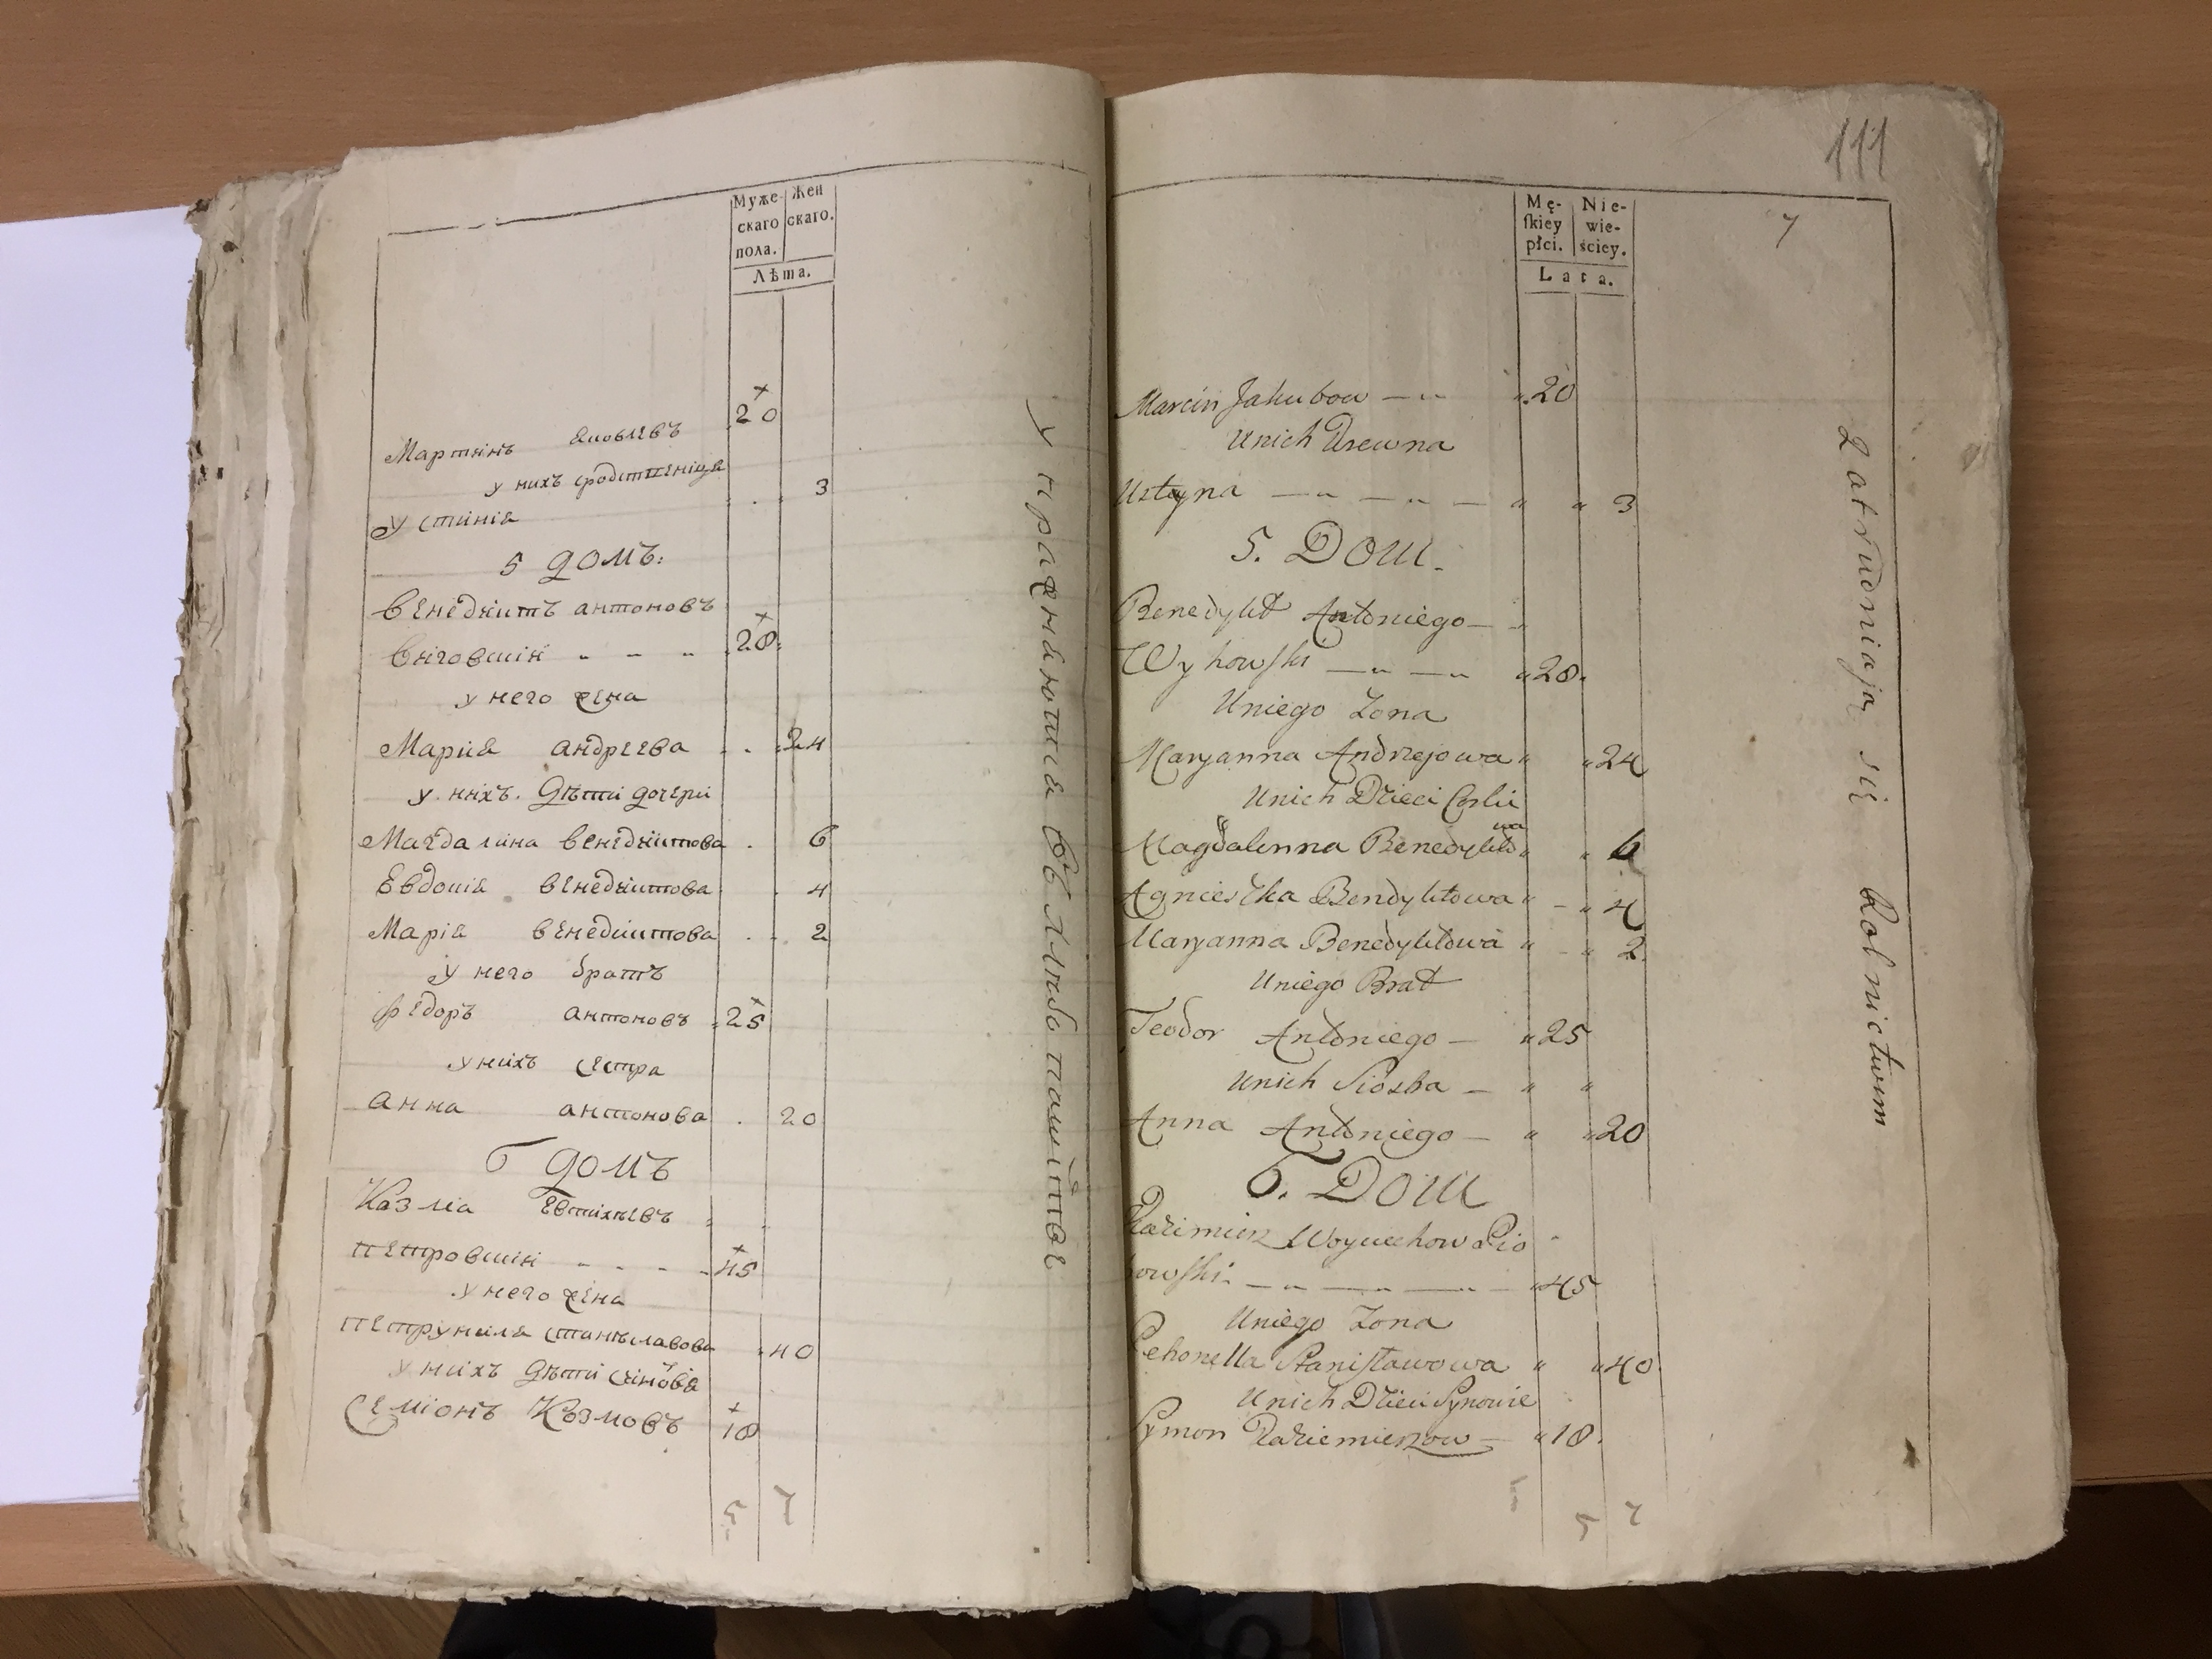 Муже-
скаго
пола.
Жен
скаго.
Лѣта.
Мартинъ Яковлевъ 20
у нихъ сродственица
Устинія 3
5 домъ:
Венедиктъ антоновъ
виговскій 28
у него жена
Мария андреева 24
у нихъ дѣти дочери
Магдалина венедиктова 6
Евдокія венедиктова 4
Марія венедиктова 2
у него братъ
Федоръ антоновъ 25
у нихъ сестра
анна антонова 20
6 домъ
Козма
петровскій 45
у него жена
петрунеля станиславова 40
у нихъ дѣти синовя
Семіонъ Козмовъ 18
5 7
упражняются въ хлебопашistве
111
7
Mę-
skiey
płci.
Nie-
wie-
ściey.
Lata.
Marcin Jakubow 20
Unich Krewna
Ustyna 3
5. Dom.
Benedykt Antoniego
Wyhowski 28.
Uniego Zona
Maryanna Andrzejowa 24
Unich Dzieci Corki
Magdalenna Benedyktowa 6
Agnieszka Bendyktowa 4
Maryanna Benedyktowa 2
Uniego Brat
Teodor Antoniego 25
Unich Siostra
Anna Antoniego 20
6. Dom
Kazimierz Woyciechow Pio
rowski 45
Uniego Zona
Petronella Stanisławowa 40
Unich Dzieci Synowie
Symon Kaziemierzow 18.
5 7
Zatrudniają się Rolnictwm